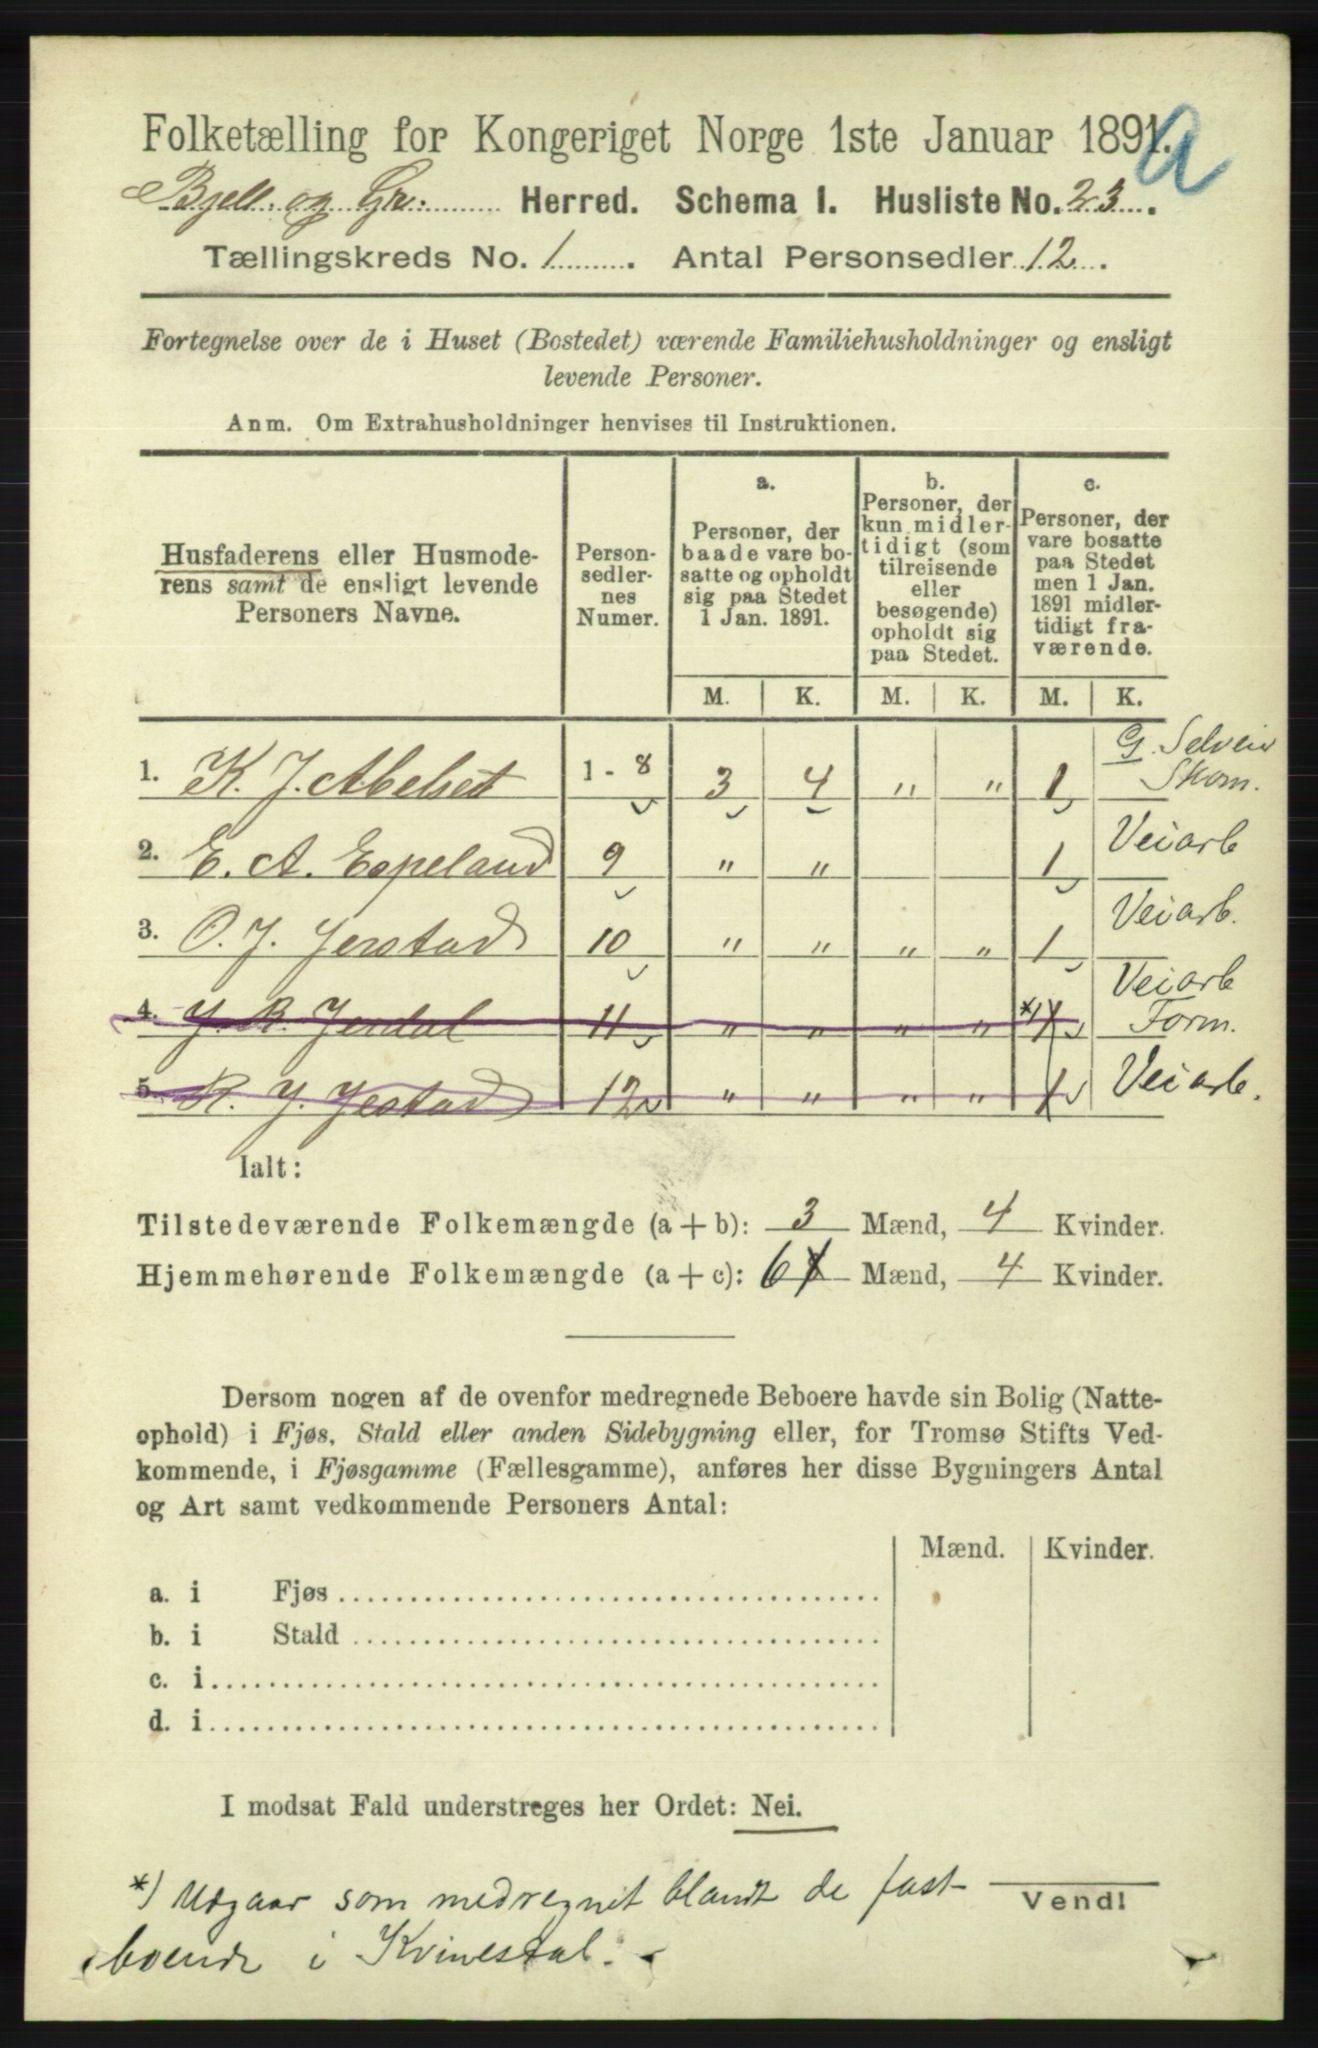 Folketælling for Kongeriget Norge 1ste Januar 1891.
a
Bjell. og Gr. Herred. Schema I. Husliste No. 23.
Tællingskreds No. 1. Antal Personsedler 12.
Fortegnelse over de i Huset (Bostedet) værende Familiehusholdninger og ensligt
levende Personer.
Anm. Om Extrahusholdninger henvises til Instruktionen.
Husfaderens eller Husmode-
rens samt de ensligt levende
Personers Navne.
Person-
sedler-
nes
Numer.
a.
Personer, der
baade vare bo-
satte og opholdt
sig paa Stedet
1 Jan. 1891.
b.
Personer, der
kun midler-
tidigt (som
tilreisende
eller
besøgende)
opholdt sig
paa Stedet.
c.
Personer, der
vare bosatte
paa Stedet
men 1 Jan.
1891 midler-
tidigt fra-
værende.
M. K. M. K. M. K.
1. K. J. Abelset 1 - 8 3 4 " " 1 G. Selveier
Skom.
2. E. A. Espeland 9 " " 1 Veiarb
3. O. J. Jerstad 10 " " " " 1 Veiarb.
4. Jerdal 11 " " " " *) 1 Veiarb
Form.
5. R. J. Jestad 12 " " " " 1 Veiarb.
Ialt:
Tilstedeværende Folkemængde (a + b): 3 Mænd, 4 Kvinder.
Hjemmehørende Folkemængde (a + c): 6 Mænd, 4 Kvinder.
Dersom nogen af de ovenfor medregnede Beboere havde sin Bolig (Natte-
ophold) i Fjøs, Stald eller anden Sidebygning eller, for Tromsø Stifts Ved-
kommende, i Fjøsgamme (Fællesgamme), anføres her disse Bygningers Antal
og Art samt vedkommende Personers Antal:
Mænd. Kvinder.
a. i Fjøs
b. i Stald
c. i
d. i
I modsat Fald understreges her Ordet: Nei.
*) Udgaar som medregnet blandt de fast-
boende i Kvinesdal.
Vend!